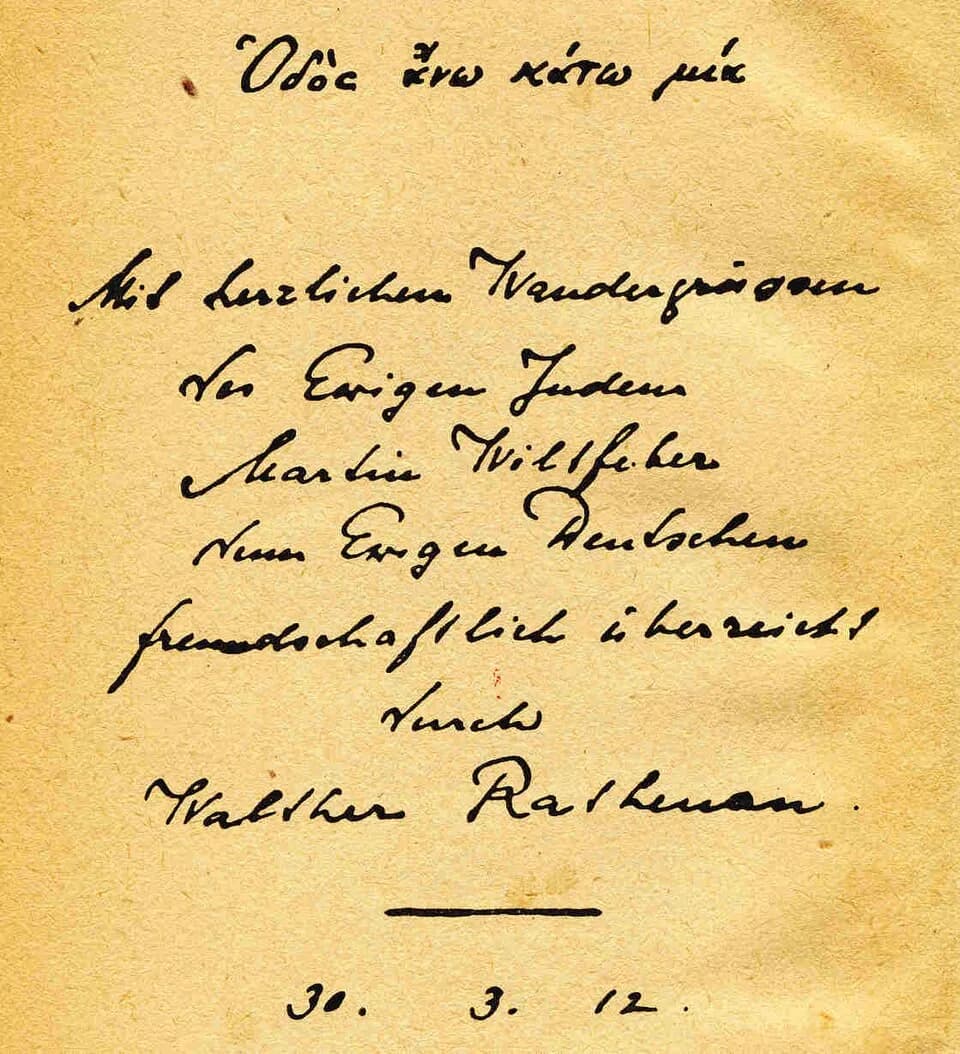 Ὁδὸς ἄνω κάτω μία
Mit herzlichen Wandergrüssen
des Ewigen Juden
Martin
dem Ewigen Deutschen
freundschaftlich überreicht
durch
Walther Rathenau.
30. 3. 12.